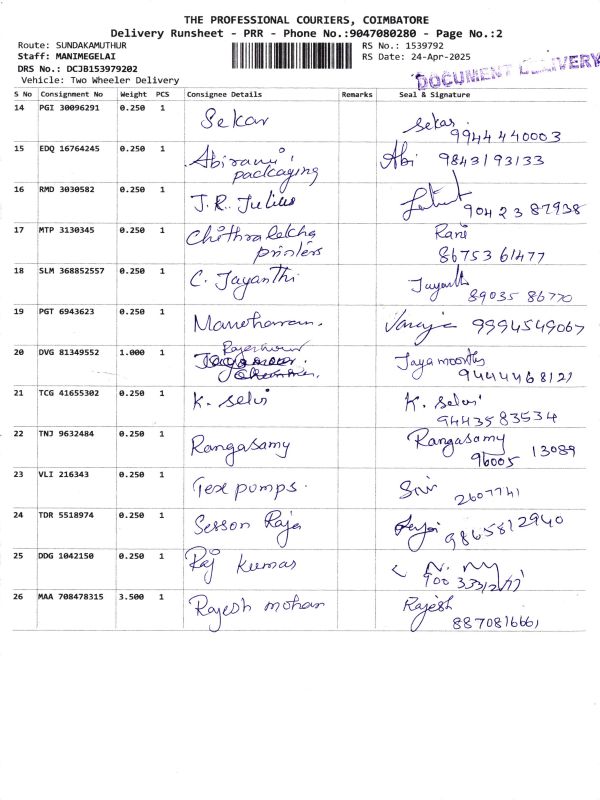 THE PROFESSIONAL COURIERS, COIMBATORE
Delivery Runsheet - PRR - Phone No.:9047080280 - Page No.:2
Route: SUNDAKAMUTHUR
RS No.: 1539792
Staff: MANIMEGELAI
RS Date: 24-Apr-2025
DRS No.: DCJB153979202
DOCUMENT DELIVERY
Vehicle: Two Wheeler Delivery
S No Consignment No Weight PCS Consignee Details Remarks Seal & Signature
14 PGI 30096291 0.250 1 Sekar Sekar
9944440003
15 EDQ 16764245 0.250 1 Abirami Abi 9843193133
packaging
16 RMD 3030582 0.250 1 J.R. Julius
90423 87938
17 MTP 3130345 0.250 1 Chithralekha Rani
printers 86753 61477
18 SLM 368852557 0.250 1 C. Jayanthi Jayanthi
89035 86770
19 PGT 6943623 0.250 1 Manoharan. 9994549067
20 DVG 81349552 1.000 1 Jayamoorthy
9444468121
21 TCG 41655302 0.250 1 K. Selvi K. Selvi
9443583534
22 TNJ 9632484 0.250 1 Rangasamy Rangasamy
96005 13089
23 VLI 216343 0.250 1 Tex pumps.
2607741
24 TDR 5518974 0.250 1 Sesson Raja
9865812940
25 DDG 1042150 0.250 1 Raj Kumar
26 MAA 708478315 3.500 1 Rajesh mohan Rajesh
8870816661